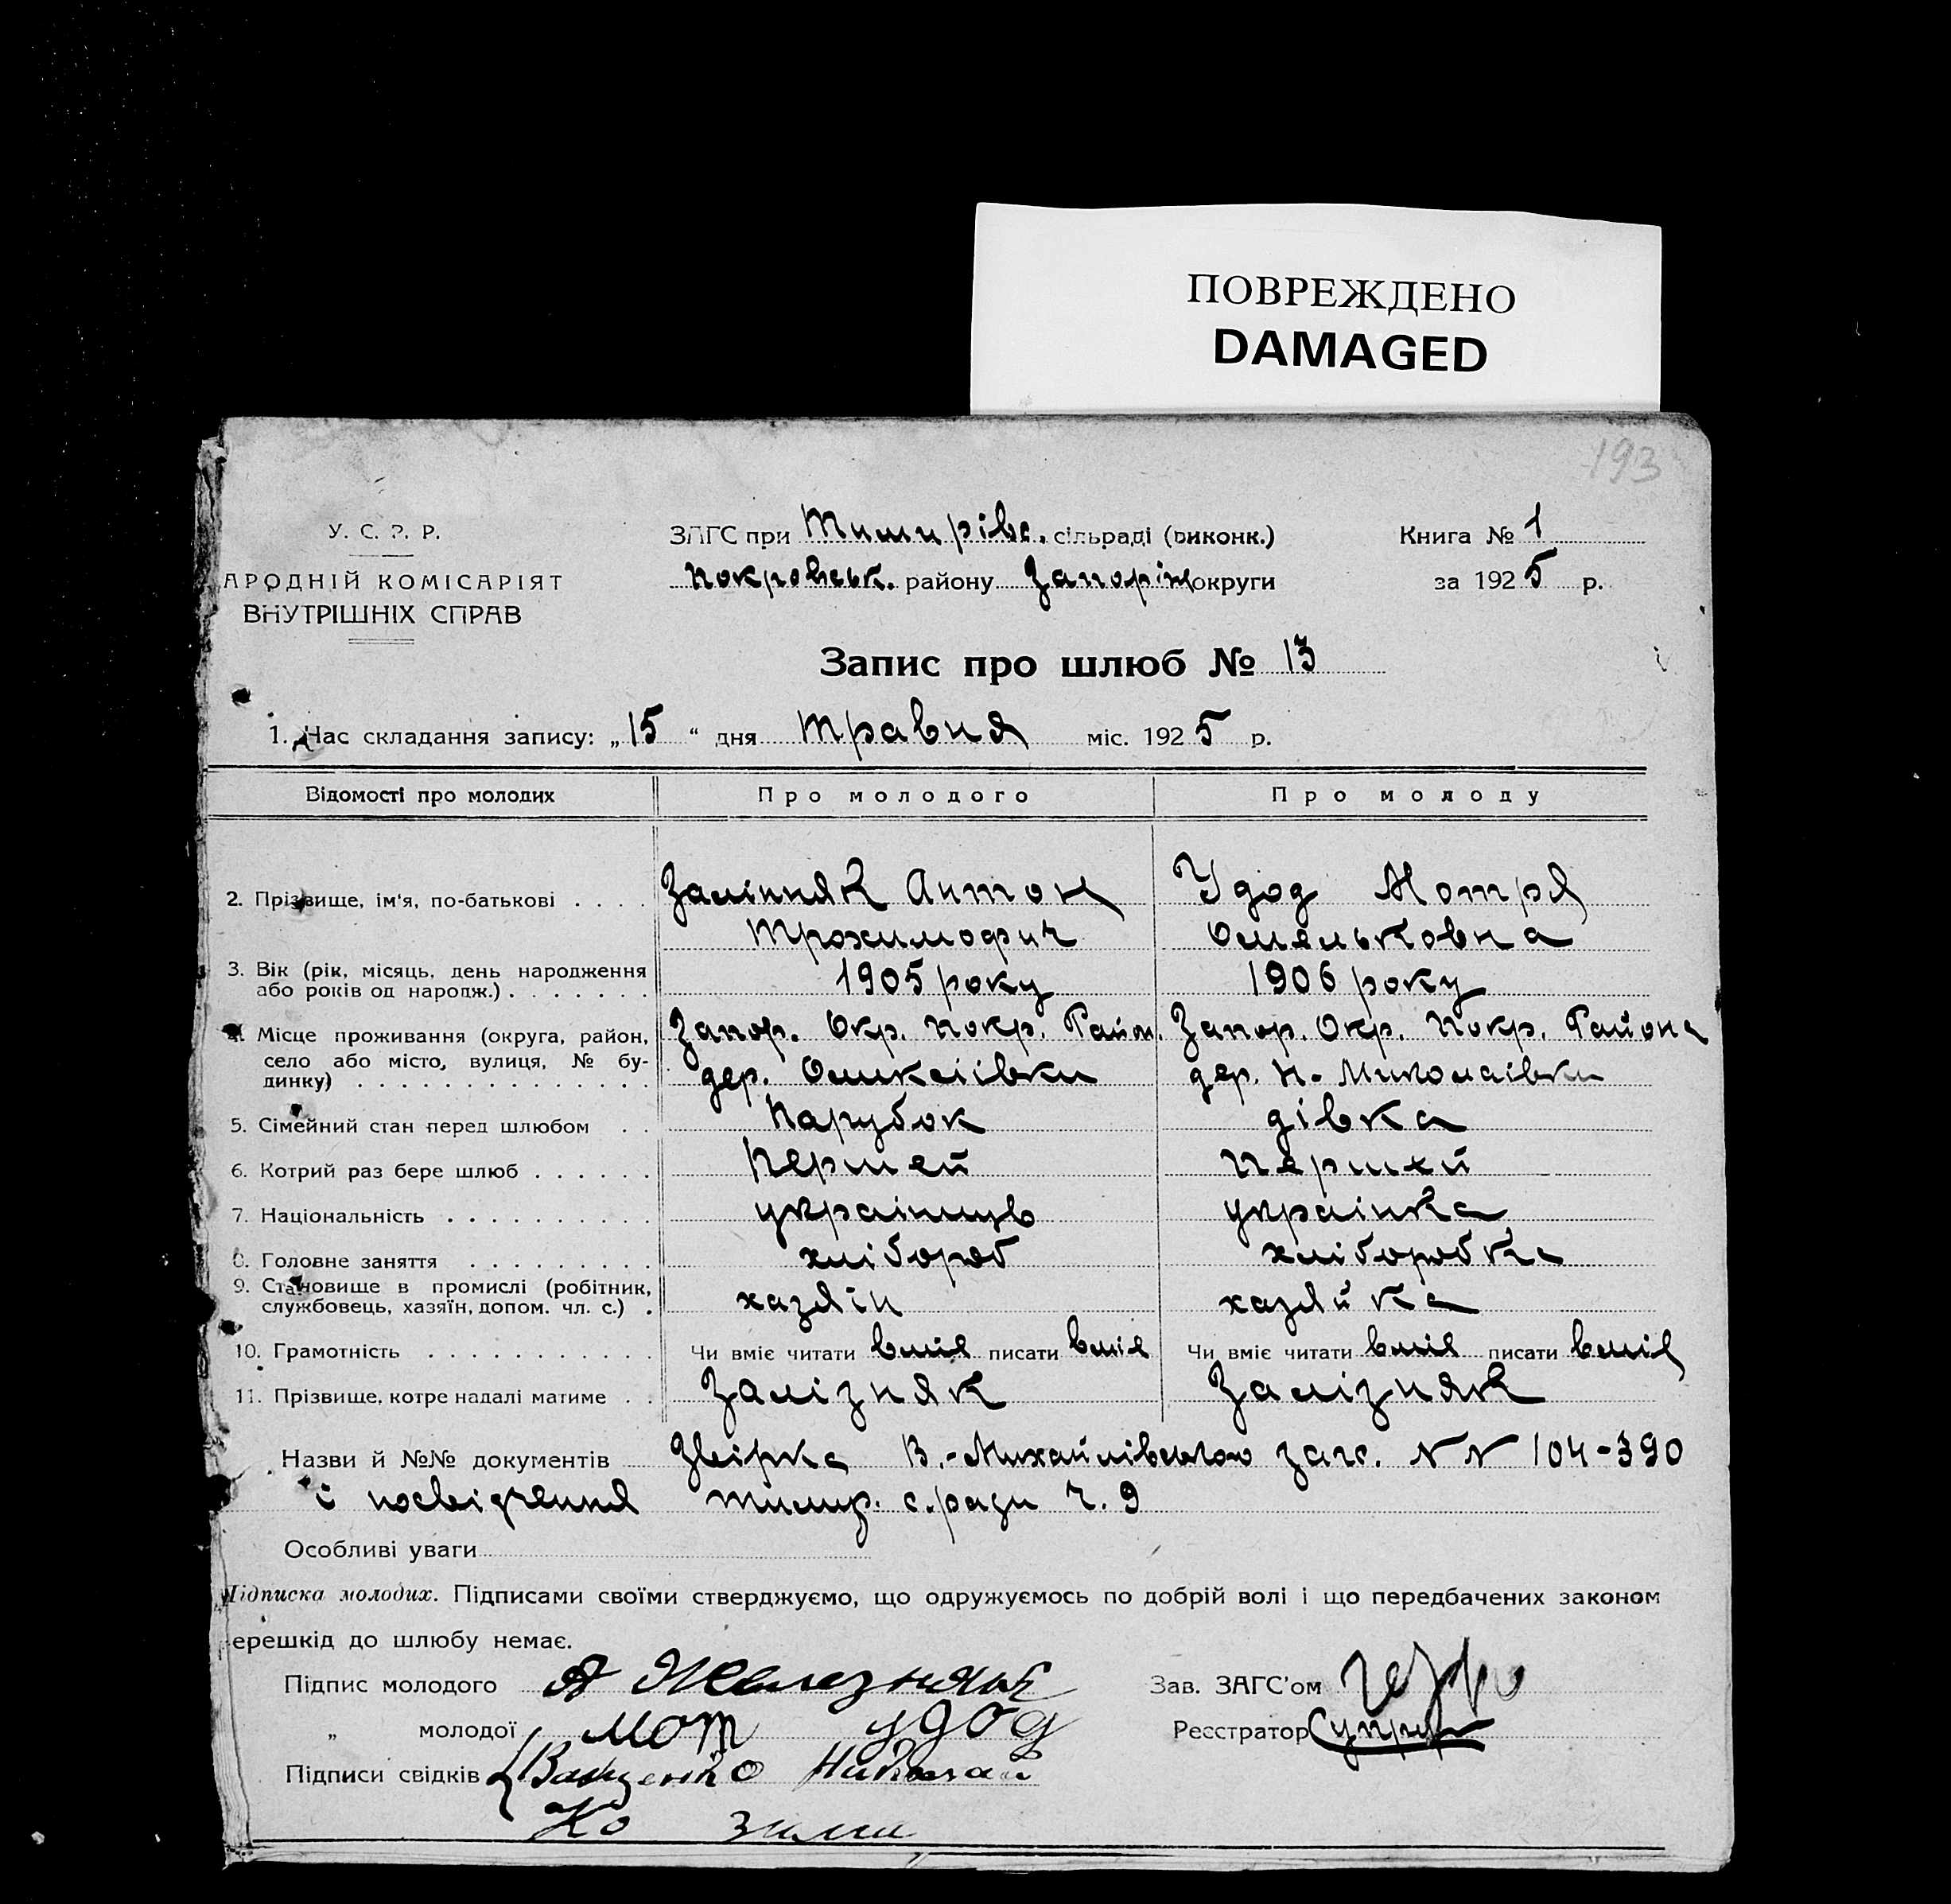 ПОВРЕЖДЕНО
DAMAGED
193
У. С. Р. Р.
ЗАГС при Тимирівс. сільраді (виконк.)
Книга № 1
Покровськ. району Запоріж округи
за 1925 р.
АРОДНІЙ КОМІСАРІЯТ
ВНУТРІШНІХ СПРАВ
Запис про шлюб № 13
1. Час складання запису: „15“ дня Травня міс. 1925 р.
Відомості про молодих Про молодого Про молоду
2. Прізвище, ім'я, по-батькові . . . . Залізняк Антон Удод Мотря
Трохимофич Омельковна
3. Вік (рік, місяць, день народження
або років од народж.) . . . . . . . 1905 року 1906 року
4. Місце проживання (округа, район, Запор. Окр. Покр. Район. Запор. Окр. Покр. Района
село або місто, вулиця, № бу-
динку) . . . . . . . . . . . . . . дер. дер. Н.-Миколаівки
5. Сімейний стан перед шлюбом . . Парубок дівка
6. Котрий раз бере шлюб . . . . . . Першей Першей
7. Національність . . . . . . . . . . украінць украінка
8. Головне заняття . . . . . . . . . хлібороб хліборобка
9. Становище в промислі (робітник,
службовець, хазяїн, допом. чл. с.) . хазяін хазяйка
10. Грамотність . . . . . . . . . . . Чи вміє читати вміє писати вміє Чи вміє читати вміє писати вміє
11. Прізвище, котре надалі матиме . . Залізняк Залізняк
Назви й №№ документів Звірка В.-Михайлівського загс. N N 104-390
і посвідчення тимир. с.ради ч. 9
Особливі уваги
Підписка молодих. Підписами своїми стверджуємо, що одружуємось по добрій волі і що передбачених законом
ерешкід до шлюбу немає.
Підпис молодого А Железнякъ Зав. ЗАГС'ом
„ молодої Мот удод Реєстратор
Підписи свідків Ващенко Николай